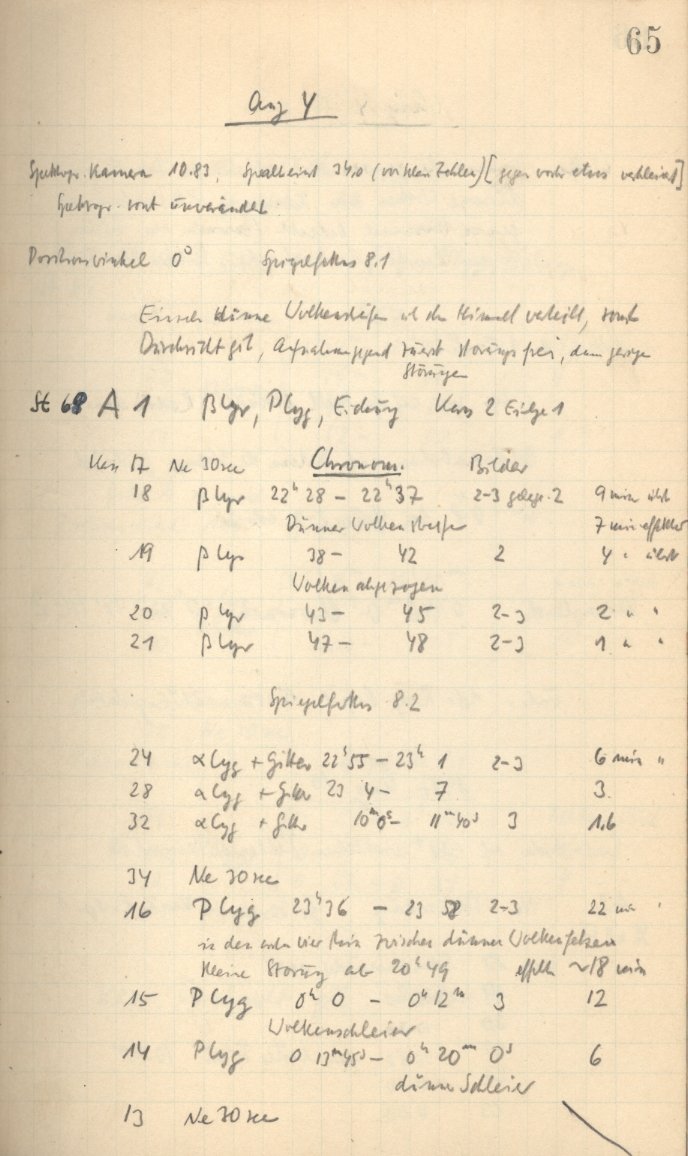 65
Aug 4
Spektrogr. Kamera 10.83, Spaltbreit 34.0 [gegen etwas verkleinert]
Spektrogr. sonst unverändert
Positionswinkel 0° Spiegelfokus 8.1
dünne Wolkenstreifen Himmel verteilt, sonst
Durchsicht gut, zuerst störungsfrei, dann geringe
Störungen
St 68 A 1 β Lyr, P Cyg, Eichung Kass 2 1
Kass 17 Ne 30 sec Chronom. Bilder
18 β Lyr 22ʰ 28 – 22ʰ 37 2-3 2 9 min
Dünner Wolkenstreifen 7 min effektiv
19 β Lyr 38 – 42 2 4 "
Wolken abgezogen
20 β Lyr 43 – 45 2-3 2 " "
21 β Lyr 47 – 48 2-3 1 " "
Spiegelfokus 8.2
24 α Cyg + Gitter 22ʰ 55 – 23ʰ 1 2-3 6 min "
28 α Cyg + Gitter 23 4 – 7 3
32 α Cyg + Gitter 10ᵐ 0ˢ – 11ᵐ 40ˢ 3 1.6
34 Ne 30 sec
16 P Cyg 23ʰ 36 – 23 58 2-3 22 min "
in den ersten vier Min zwischen dünnen Wolkenfetzen
kleine Störung ab 20ʰ 49 effektiv ~18 min
15 P Cyg 0ʰ 0 – 0ʰ 12ᵐ 3 12
Wolkenschleier
14 P Cyg 0 13ᵐ 45ˢ – 0ʰ 20ᵐ 0ˢ 6
dünner Schleier
13 Ne 30 sec